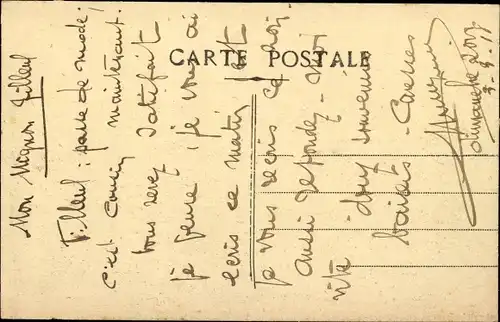 CARTE POSTALE
Mon Mignon Filleul
Filleul : passe de mode ;
c'est cousin maintenant.
Vous serez satisfait
je pense, je vous ai
écris ce matin et
je vous récris ce soir
aussi répondez-moi
vite
doux souvenirs
baisers - Caresses
dimanche soir
3-9-11